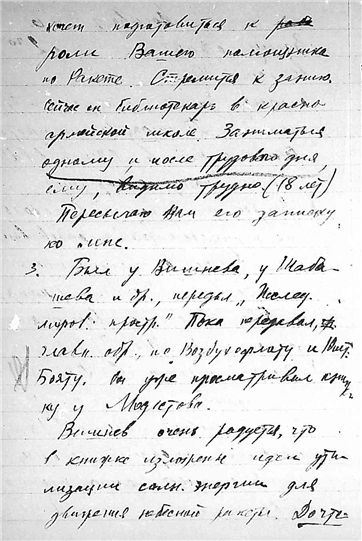 хочет подготовиться к
роли Вашего помощника
по Ракете. Стремится к
сейчас он библиотекарь в красно
армейской школе. Заниматься
одному и после трудового дня,
ему, видимо трудно (18 лет)
Пересылаю Вам его записку
ко мне.
3. Был у Вишнева, у
и др., передал „Исслед.
миров. простр." Пока передавал,
главн. обр., по Воздухофлоту и
Вы уже просматривал
ку у Модестова.
очень радуется, что
в книжке изложены идеи ути-
лизации солн. энергии для
движения небесной ракеты.